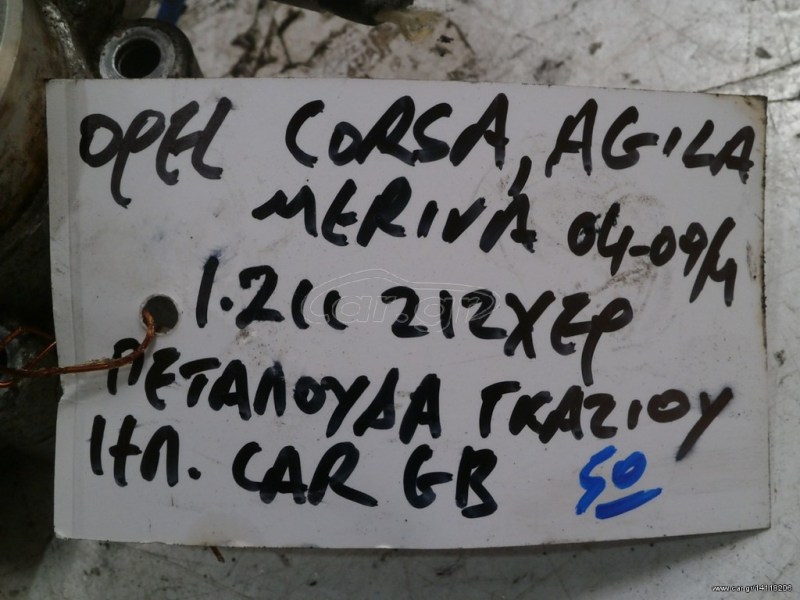 OPEL CORSA, AGILA
MERIVA 04-09/4
1.2CC Z12XEP
ΠΕΤΑΛΟΥΔΑ ΓΚΑΖΙΟΥ
ΙΗΠ. CAR GB 50
www.car.gr/14118206